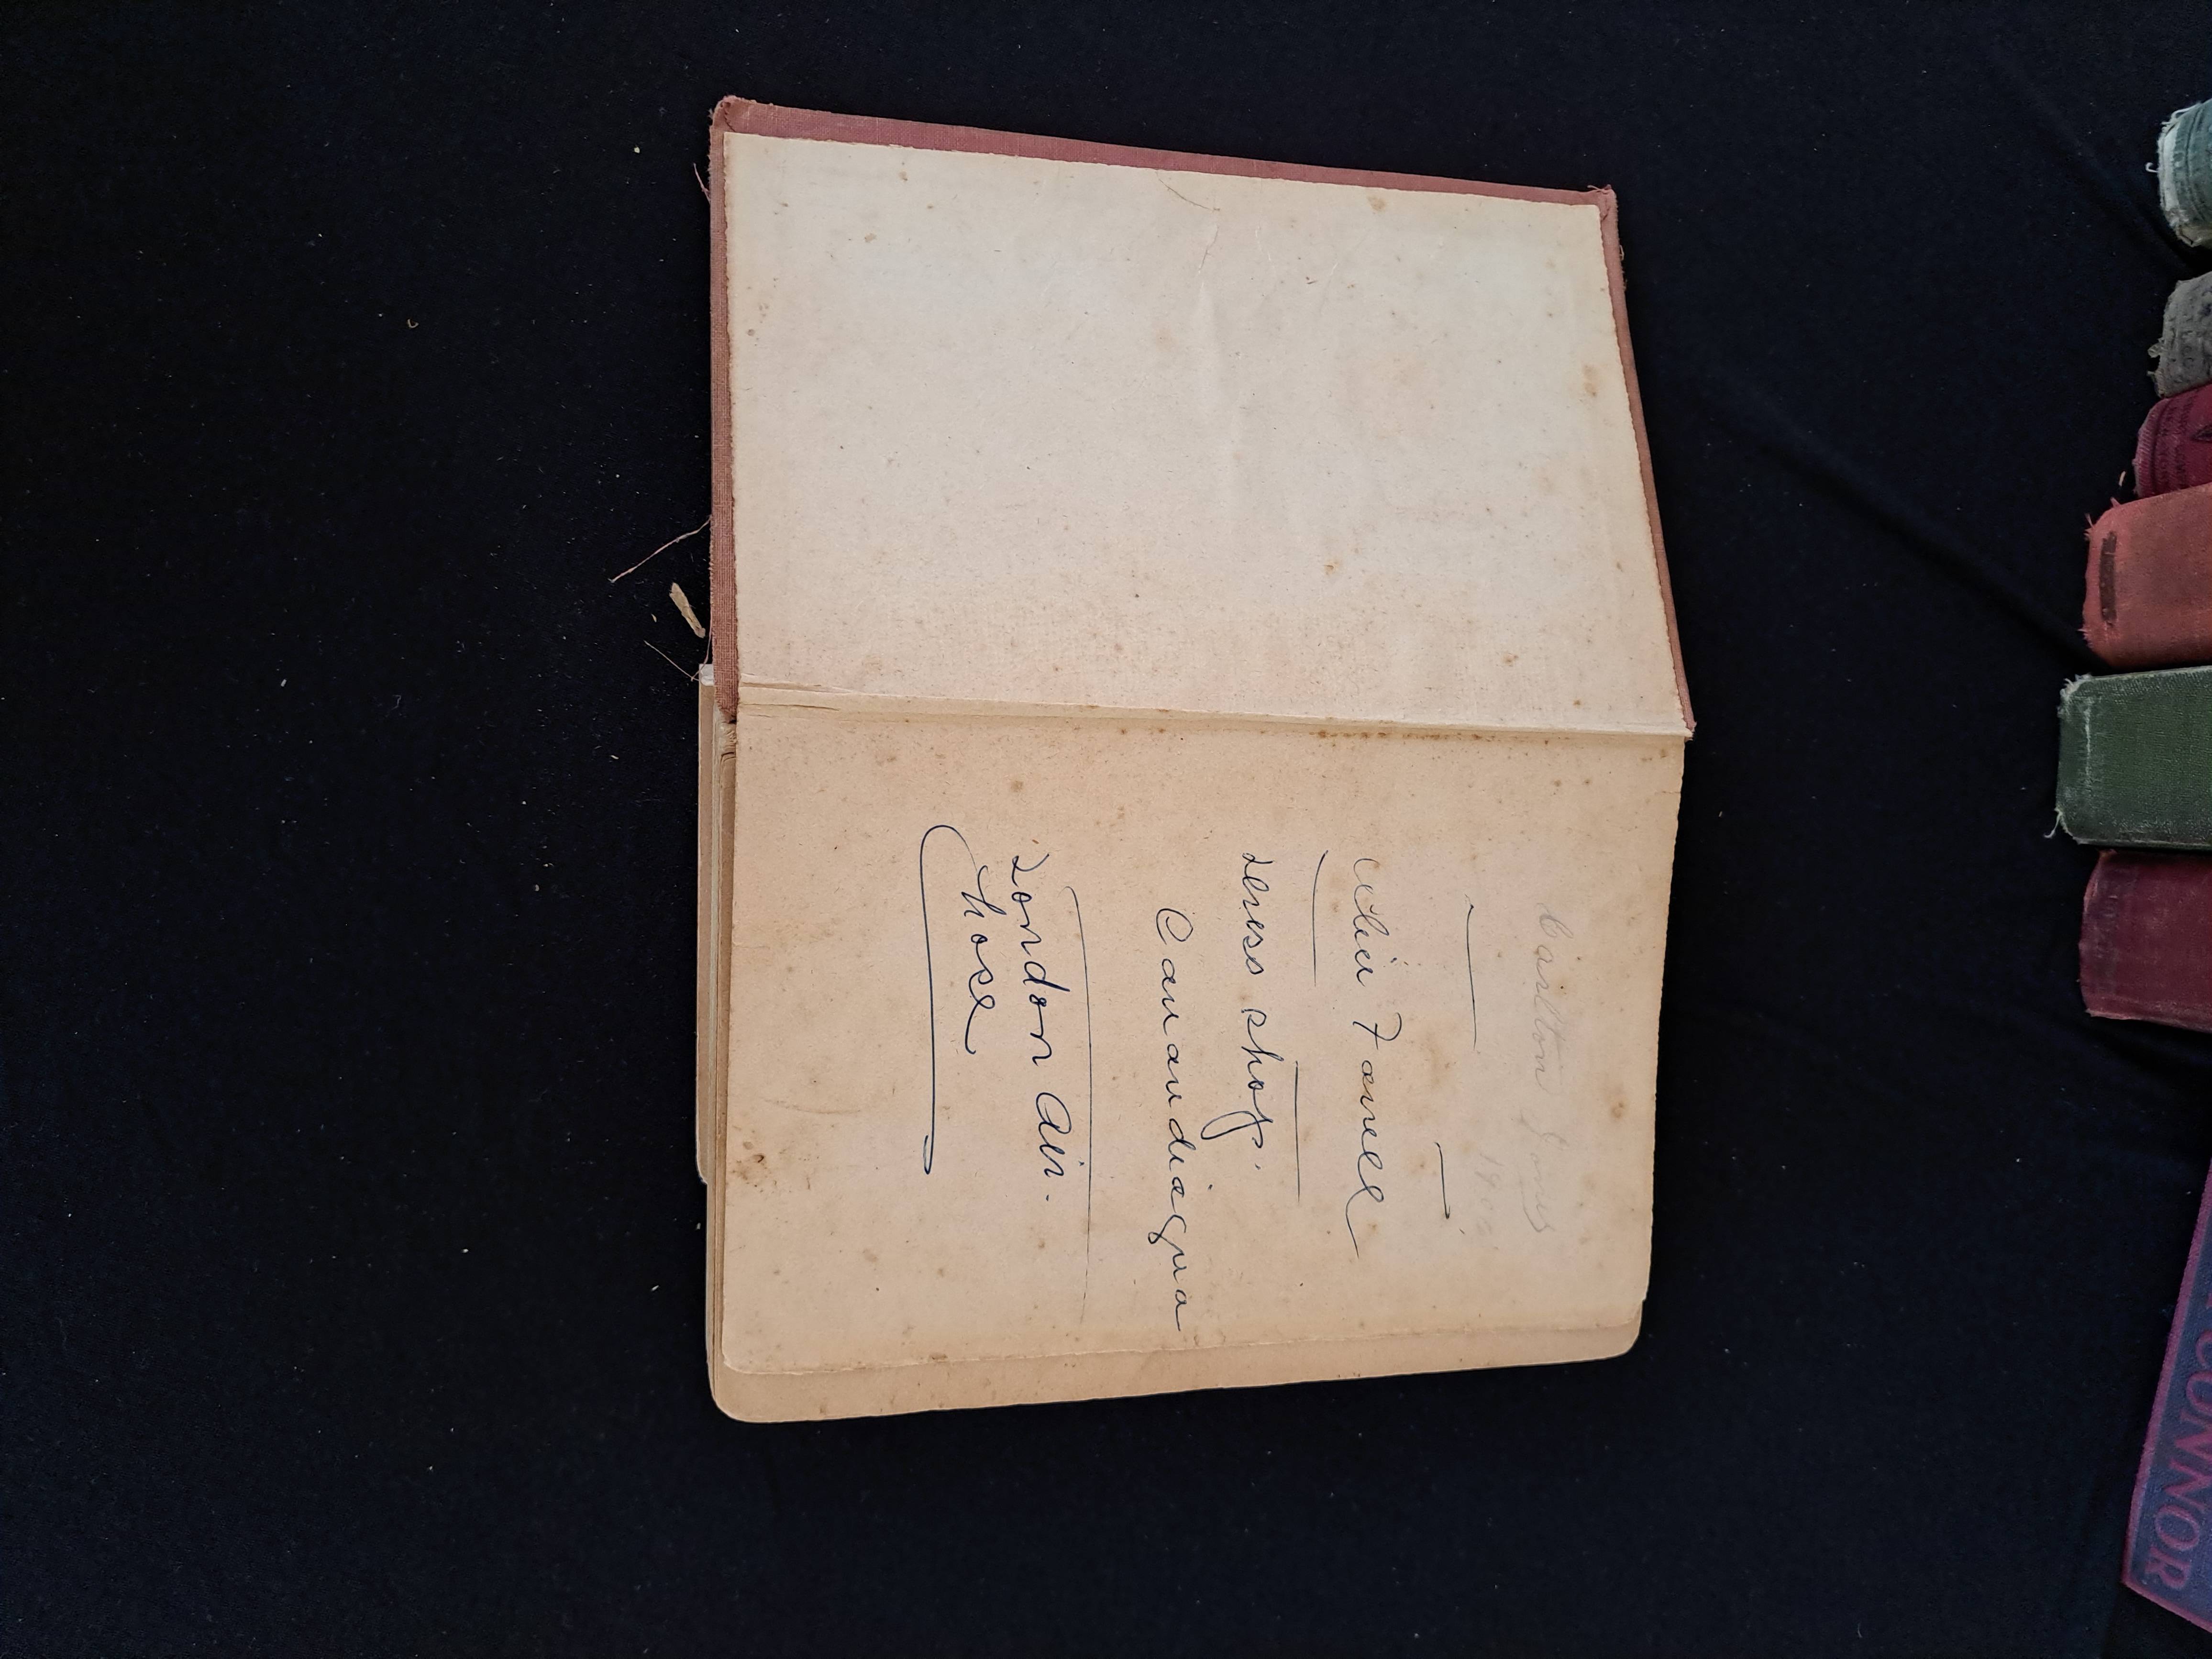 Carlton Jones
190
Farrell
dress shop.
Canandiagua
London Air.
hose
CONNOR